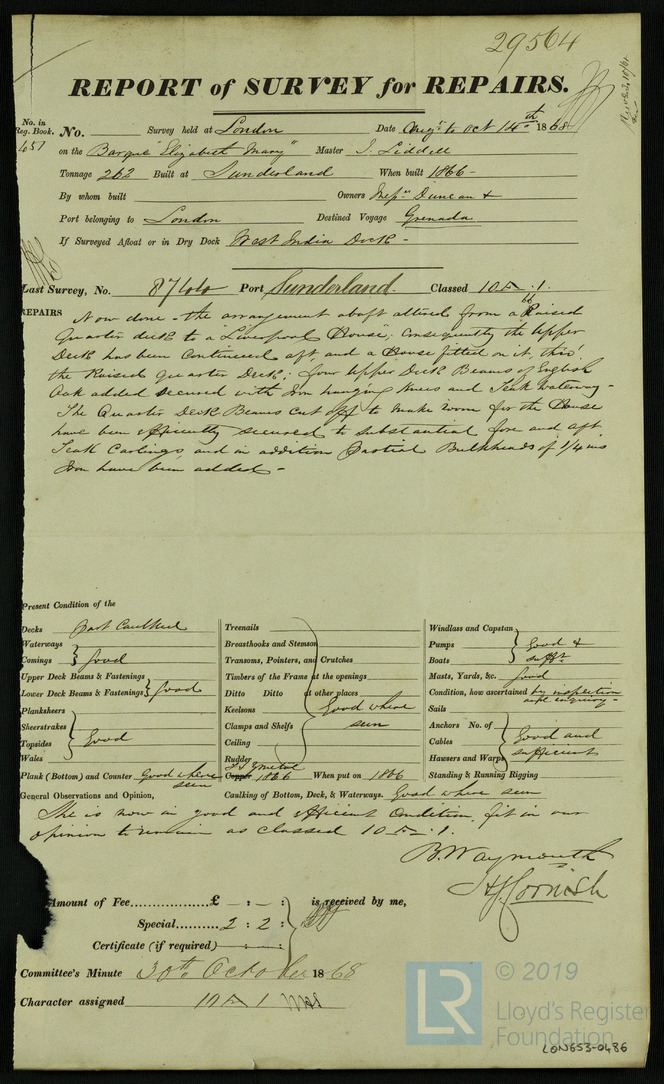 29564
REPORT of SURVEY for REPAIRS.
No. in Reg. Book.
No. Survey held at London Date Augt to Oct 14th 1868
on the Barque "Elizabeth Mary" Master J. Liddell
Tonnage 262 Built at Sunderland When built 1866 -
By whom built Owners Messrs Duncan &
Port belonging to London Destined Voyage Grenada
If Surveyed Afloat or in Dry Dock West India Dock -
Last Survey, No. 8744 Port Sunderland. Classed 10 A.1.
66
REPAIRS Now done - the arrangement abaft altered from a Raised
Quarter deck to a "Liverpool House"; Consequently the Upper
Deck has been Continued aft, and a House fitted on it, thro'
the Raised Quarter Deck; four Upper Deck Beams of English
Oak added secured with Iron hanging Knees and Teak Waterway -
The Quarter Deck Beams cut off to make room for the House
have been efficiently secured to substantial fore and aft
Teak Carlings, and in addition Partial Bulkheads of 1/4 ins
Iron have been added -
Present Condition of the
Decks part Caulked
Waterways
Comings } good
Upper Deck Beams & Fastenings
Lower Deck Beams & Fastenings } good
Planksheers
Sheerstrakes
Topsides } Good
Wales
Plank (Bottom) and Counter Good where seen
Treenails
Breasthooks and Stemson
Transoms, Pointers, and Crutches
Timbers of the Frame at the openings
Ditto Ditto at other places
Keelsons Good where
Clamps and Shelfs seen
Ceiling
Rudder
Y Metal
Copper 1866 When put on 1866
Windlass and Capstan
Pumps } Good &
Boats sufft
Masts, Yards, &c. good
Condition, how ascertained by inspection and enquiry -
Sails
Anchors No. of
Cables } Good and
Hawsers and Warps sufficient
Standing & Running Rigging
General Observations and Opinion, Caulking of Bottom, Deck, & Waterways. Good where seen
She is now in good and efficient Condition, fit in our
opinion to remain as classed 10 A.1.
B. Waymouth
H J Cornish
Amount of Fee £ — : — : is received by me,
Special 2 : 2 :
Certificate (if required)
Committee's Minute 30th October 1868
Character assigned 10 A 1
LR © 2019
Lloyd's Register
Foundation
LON653-0486